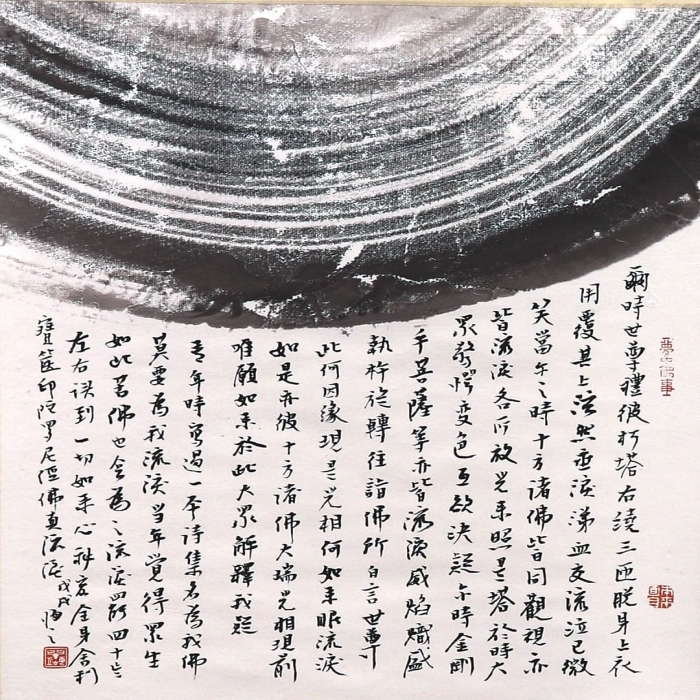 爾時世尊禮彼朽塔右繞三匝脫身上衣
用覆其上泫然垂淚涕血交流泣已微
笑當爾之時十方諸佛皆同觀視亦
皆流淚各所放光來照是塔於時大
眾驚愕變色互欲決疑爾時金剛
手菩薩等亦皆流淚威焰熾盛
執杵旋轉往詣佛所白言世尊
此何因緣現是光相何如來眼流淚
如是亦彼十方諸佛大瑞光相現前
唯願如來於此大眾解釋我疑
青年時寫過一本詩集名為我佛
莫要為我流淚當年覺得眾生
如此苦佛也會為之流淚四所四十於
左右讀到一切如來心秘密全身舍利
寶篋印陀羅尼經佛真流淚 戊戌